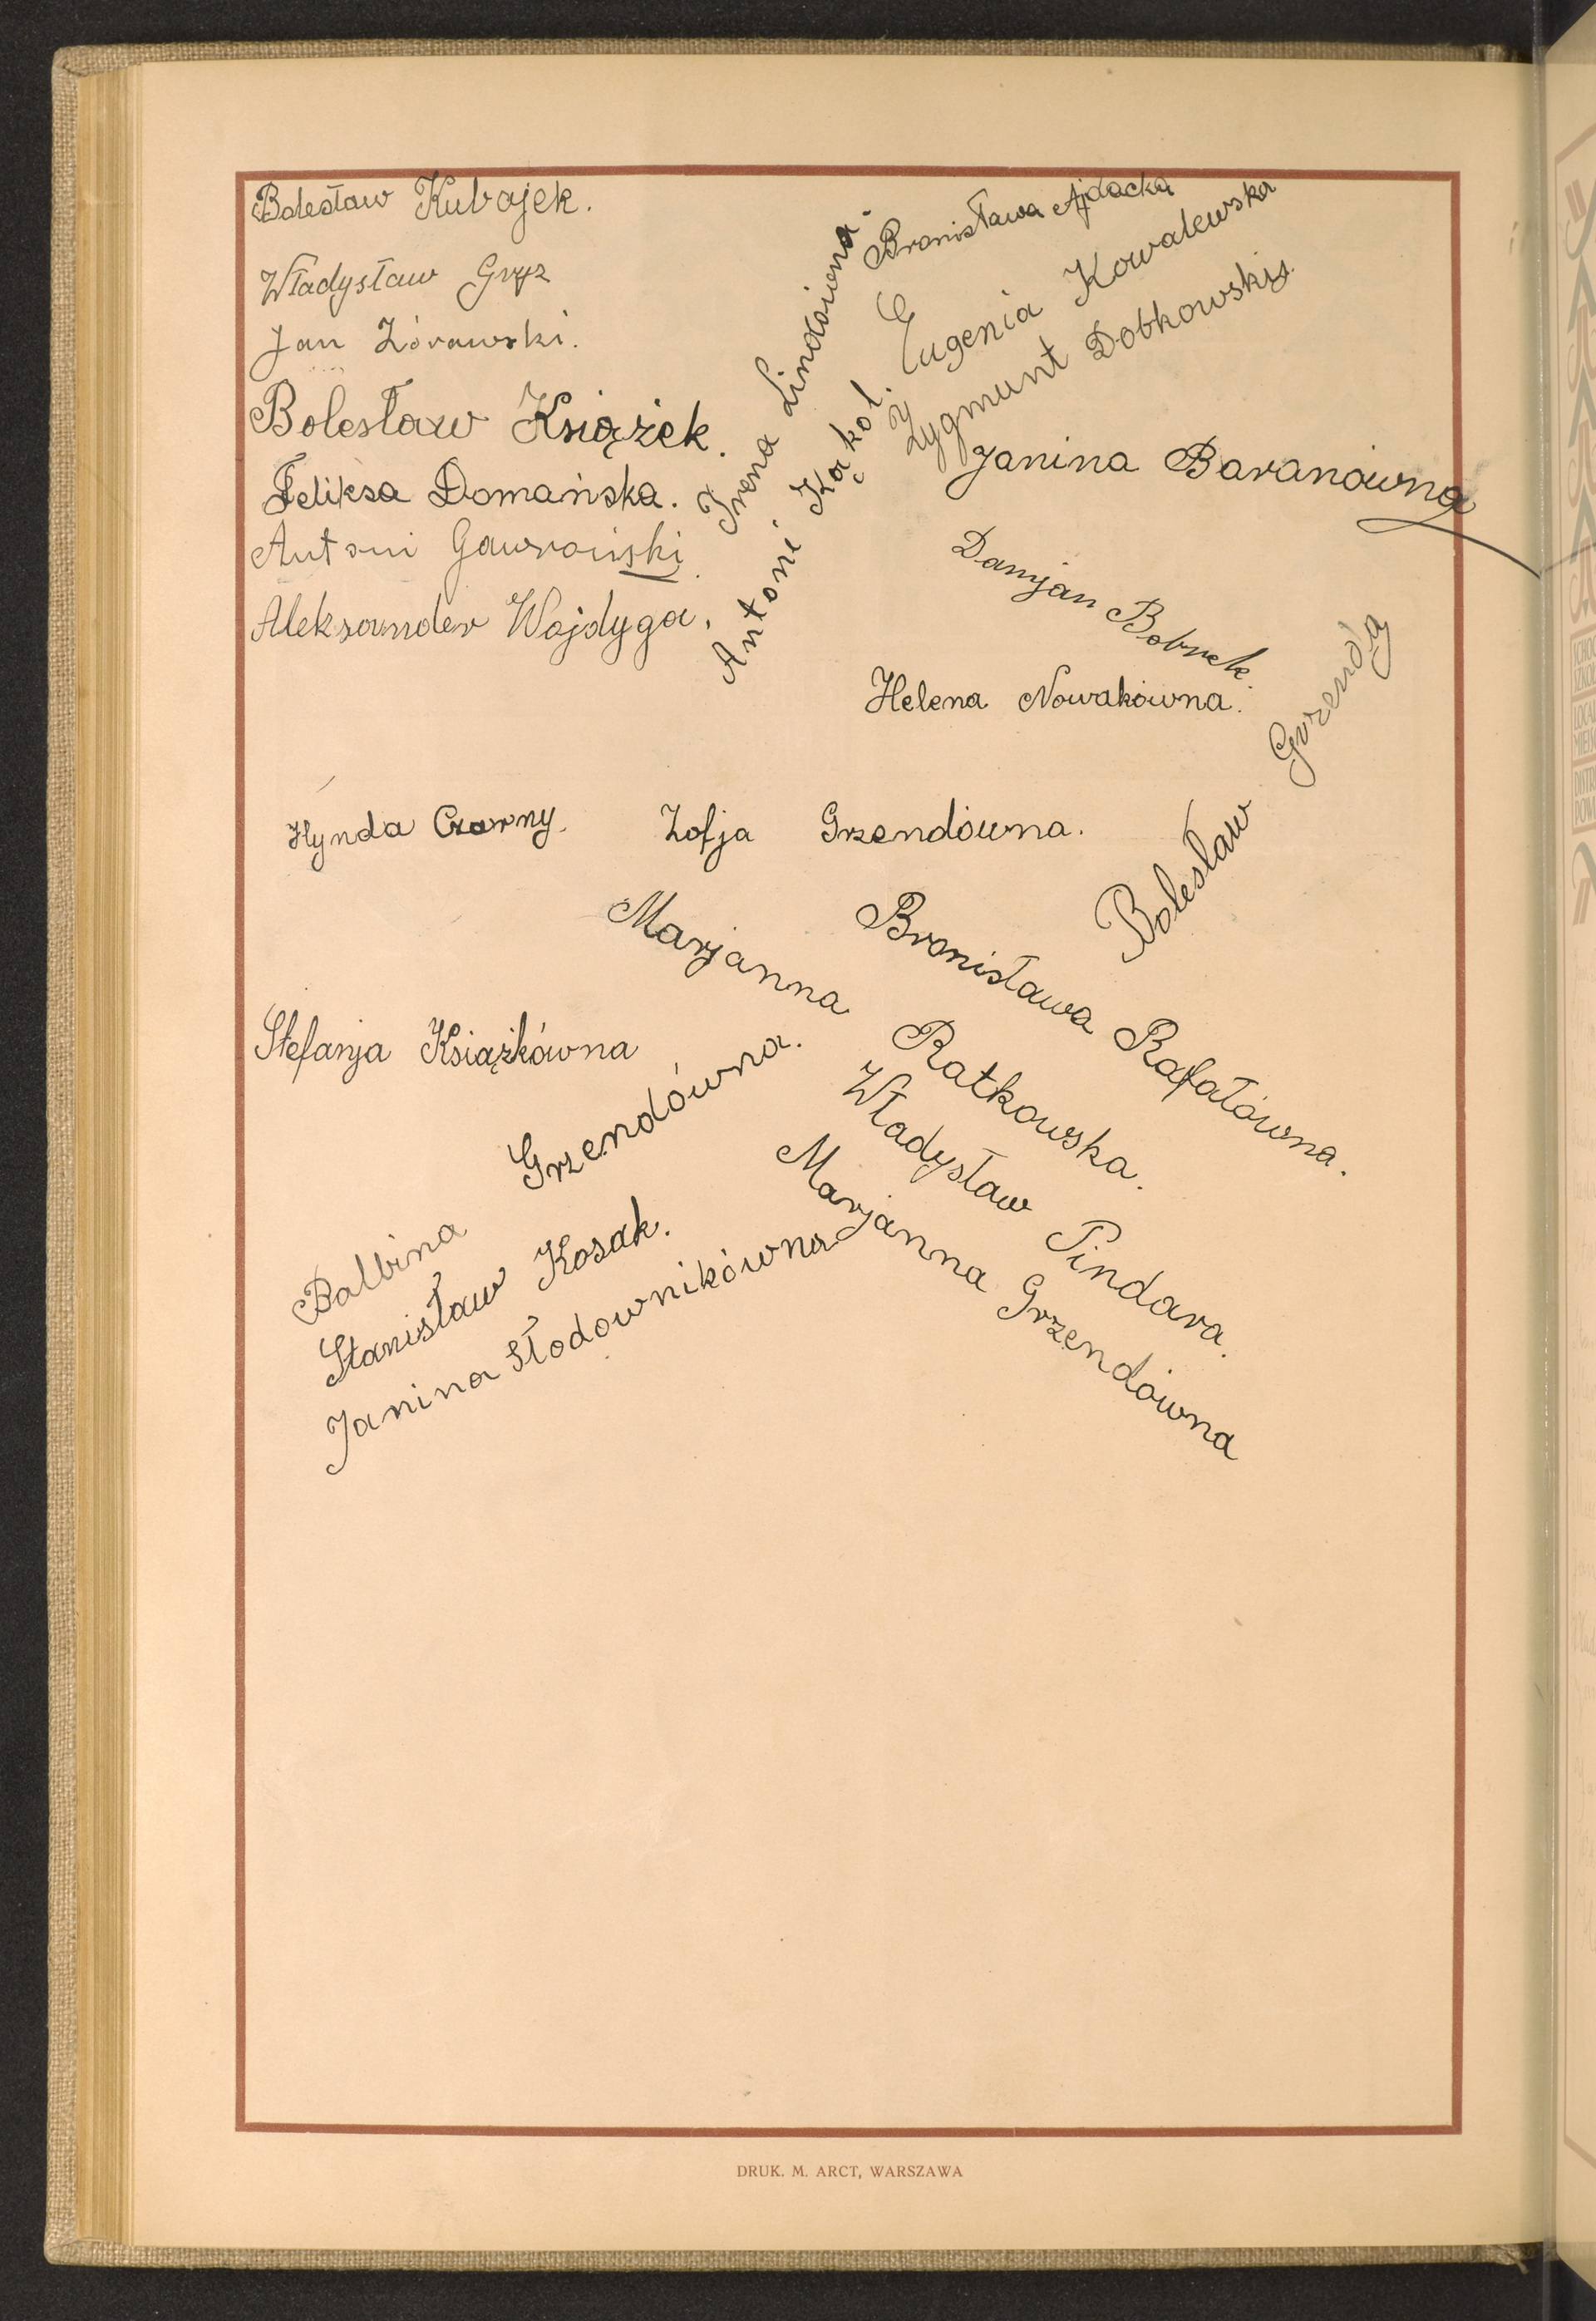 Bolesław Kubajek.
Władysław Gryz
Jan Żórawski.
Bolesław Książek.
Feliksa Domańska.
Antoni Gawroński.
Aleksander Wojdyga.
Irena Lindówna.
Antoni Kąkol.
Bronisława Ajdacka
Eugenia Kowalewska
Zygmunt Dobkowski.
Janina Baranówna
Damjan Bobrek.
Helena Nowakówna.
Bolesław Grzenda
Hynda Czarny.
Zofja Grzendówna.
Bronisława Rafałówna.
Marjanna Ratkowska.
Władysław Pindara.
Marjanna Grzendówna
Stefanja Książkówna
Balbina Grzendówna.
Stanisław Kosak.
Janina Słodownikówna
DRUK. M. ARCT, WARSZAWA